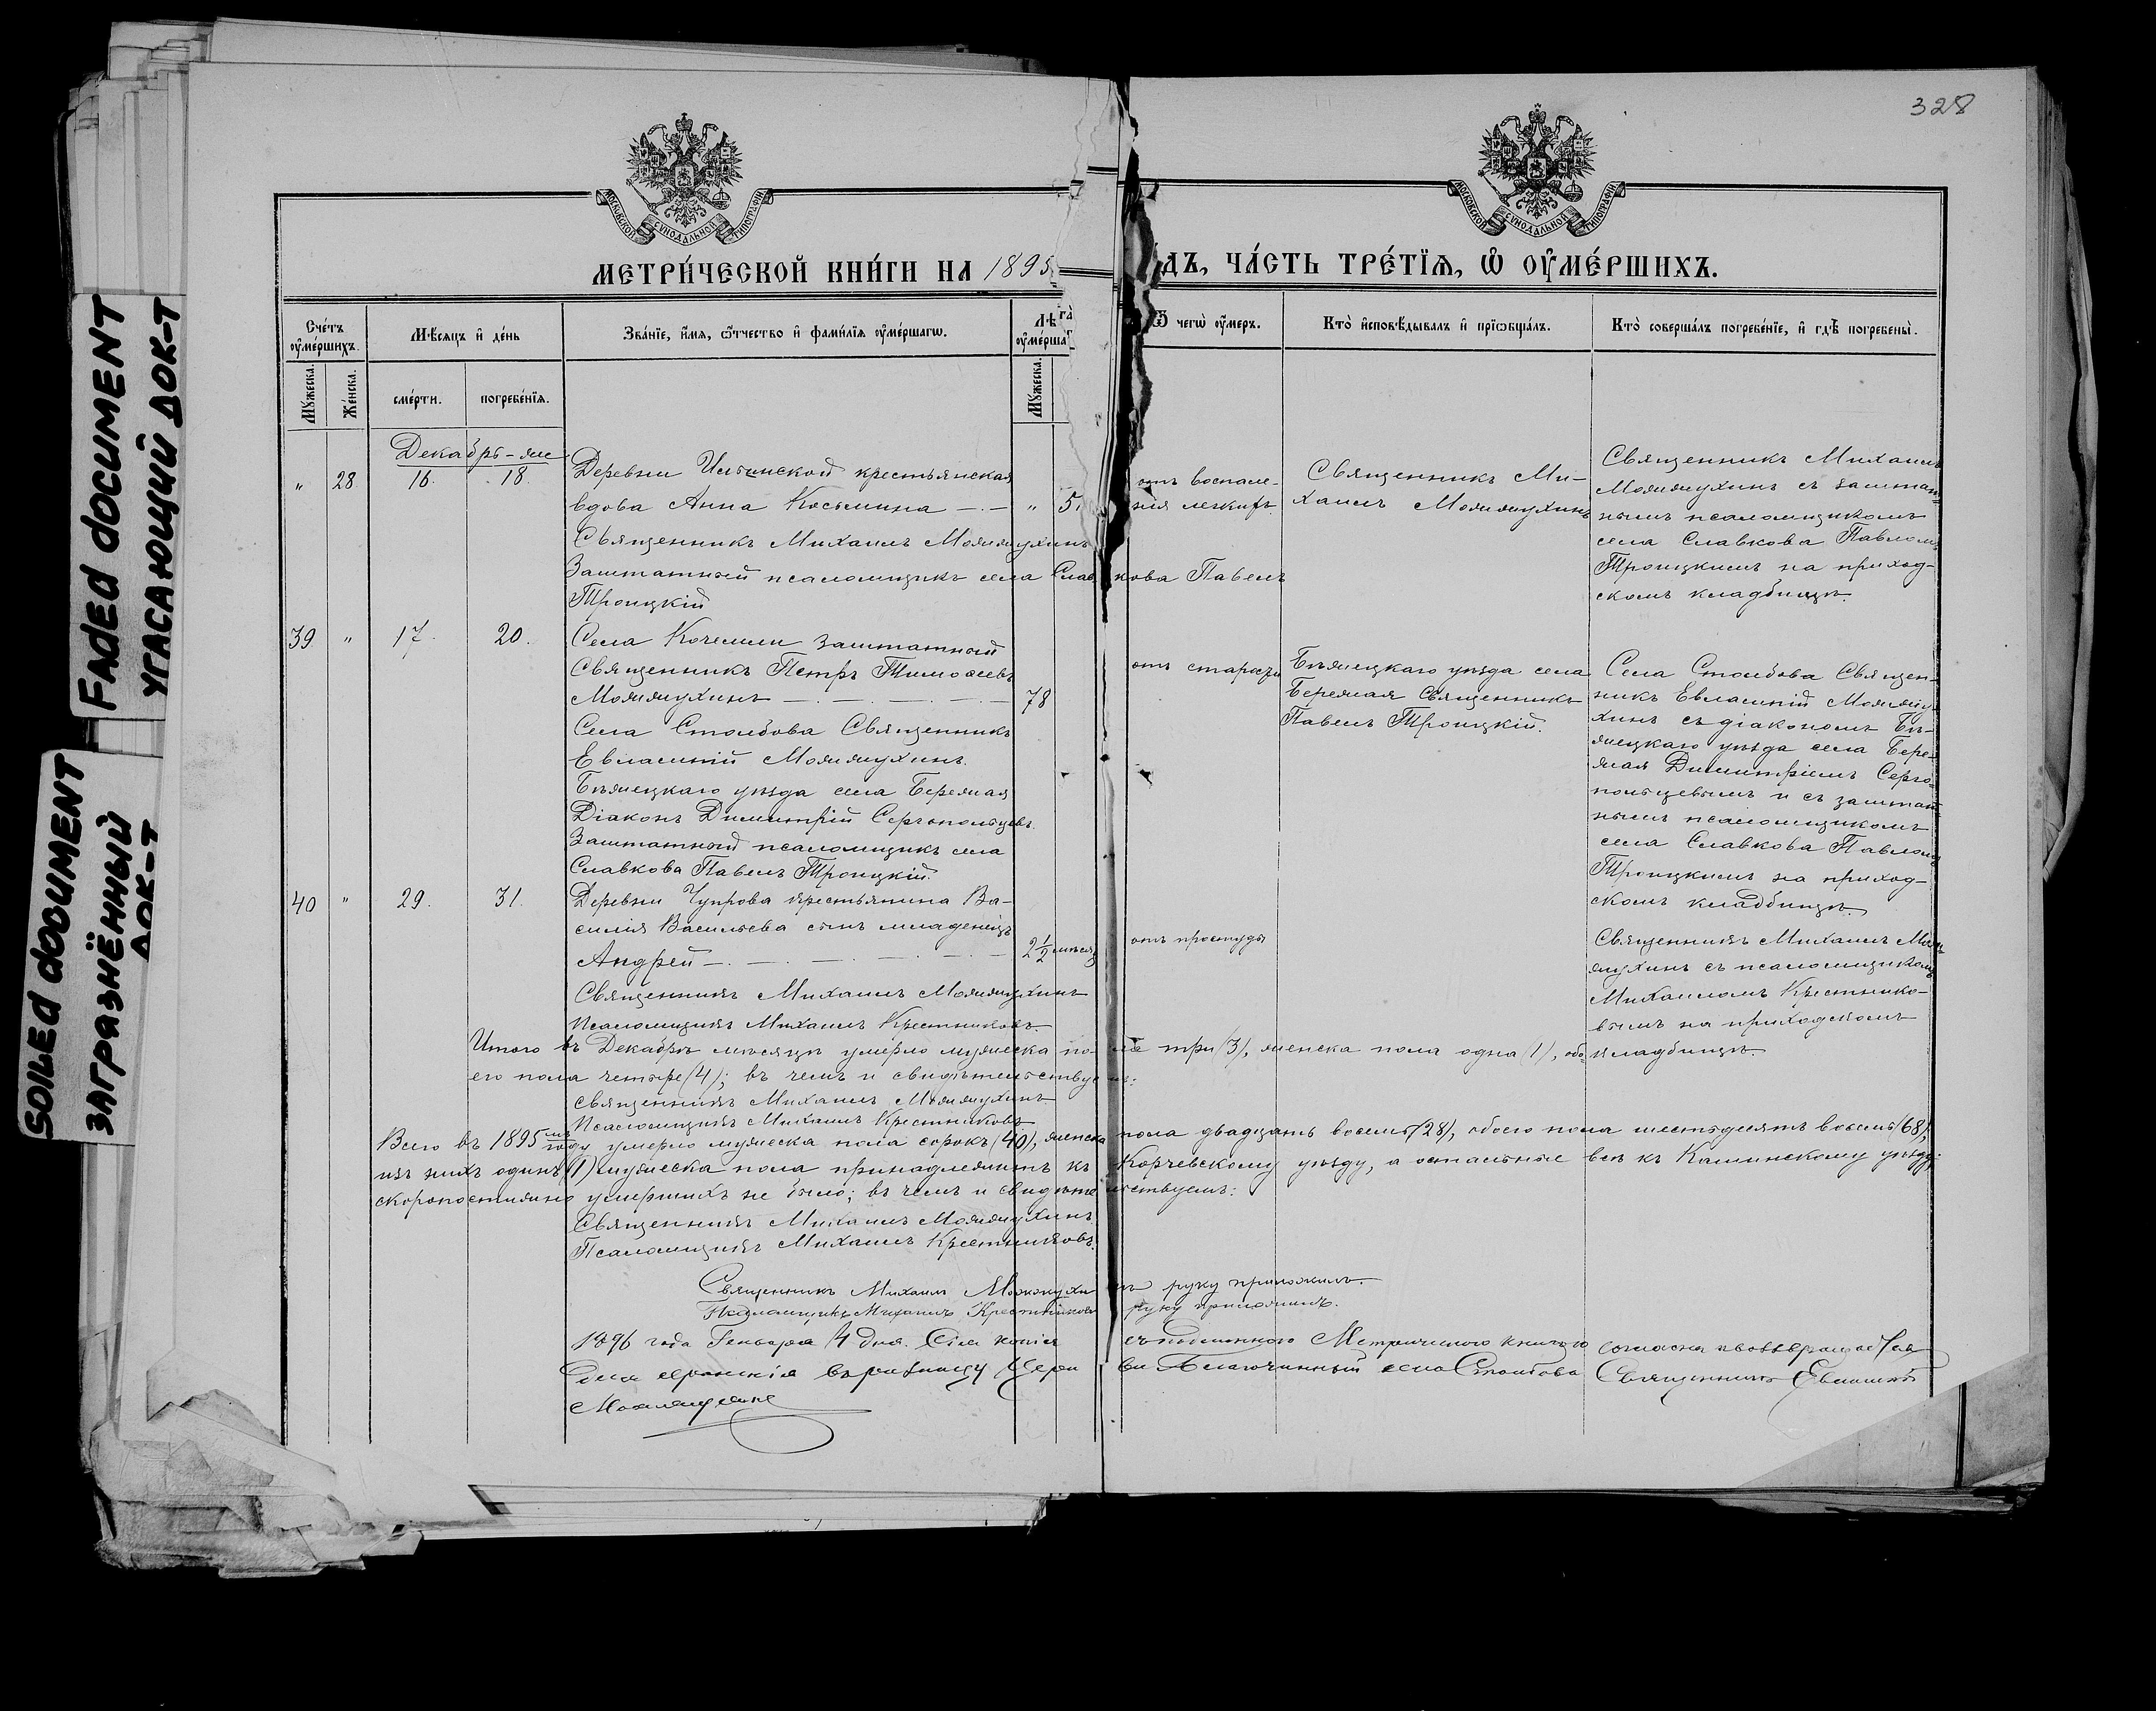 328
FADED DOCUMENT
УГАСАЮЩИЙ ДОК-Т
SOILED DOCUMENT
ЗАГРЯЗНЁННЫЙ
ДОК-Т
МОСКОВСКОЙ СѴНОДАЛЬНОЙ ТИПОГРАФІИ
МОСКОВСКОЙ СѴНОДАЛЬНОЙ ТИПОГРАФІИ
МЕТРИ́ЧЕСКОЙ КНИ́ГИ НА 1895
ДЪ, ЧА́СТЬ ТРЕ́ТІѦ, Ѽ ОУ҆МЕ́РШИХЪ.
Сче́тъ оу҆ме́ршихъ.
Мѣ́сѧцъ и҆ де́нь
Зва́нїе, и҆́мѧ, ѻ҆́тчество и҆ фами́лїѧ оу҆ме́ршагѡ.
Лѣ
оу҆ме́рша
Ѿ чегѡ̀ оу҆́меръ.
Кто̀ и҆сповѣ́дывалъ и҆ прїѡбща́лъ.
Кто̀ соверша́лъ погребе́нїе, и҆ гдѣ̀ погребены̀.
Мꙋ́жеска.
Же́нска.
сме́рти.
погребе́нїѧ.
Мꙋ́жеска.
Декабрь-мѣ
" 28 16. 18.
Деревни крестьянская
вдова Анна Косьмина " 5
Священникъ Михаилъ Моллюхинъ
Заштатный псаломщикъ села Славкова Павелъ
Троицкій
отъ воспале-
нія легкихъ
Священникъ Ми-
хаилъ
Священникъ Михаилъ
съ заштат-
нымъ псаломщикомъ
села Славкова Павломъ
Троицкимъ на приход-
скомъ кладбищѣ.
39 " 17. 20.
Села Кочемли заштатный
Священникъ Петръ Тимоѳеевъ
78
Села Столбова Священникъ
Евлампій
Бѣжецкаго уѣзда села Бережая
Діаконъ Димитрій
Заштатный псаломщикъ села
Славкова Павелъ Троицкій.
отъ старости
Бѣжецкаго уѣзда села
Бережая Священникъ
Павелъ Троицкій.
Села Столбова Священ-
никъ Евлампій
съ діакономъ Бѣ-
жецкаго уѣзда села Бере-
жая Димитріемъ
и съ заштат-
нымъ псаломщикомъ
села Славкова Павломъ
Троицкимъ на приход-
скомъ кладбищѣ.
40 " 29. 31.
Деревни Чупрова крестьянина Ва-
силія Васильева сынъ младенецъ
Андрей 2 1/2 мѣсяц
Священникъ Михаилъ
Псаломщикъ Михаилъ Крестниковъ.
отъ простуды
Священникъ Михаилъ
съ псаломщикомъ
Михаиломъ Крестнико-
вымъ на приходскомъ
кладбищѣ.
Итого въ Декабрѣ мѣсяцѣ умерло мужеска пола три (3), женска пола одна (1), обо-
его пола четыре (4); въ чемъ и свидѣтельствуемъ:
Священникъ Михаилъ
Псаломщикъ Михаилъ Крестниковъ
Всего въ 1895 мъ году умерло мужеска пола сорокъ (40), женска пола двадцать восемь (28), обоего пола шестьдесятъ восемь (68);
изъ нихъ одинъ (1) мужеска пола принадлежитъ къ Корчевскому уѣзду, а остальные всѣ къ Кашинскому уѣзду:
скоропостижно умершихъ не было; въ чемъ и свидѣтельствуемъ:
Священникъ Михаилъ
Псаломщикъ Михаилъ Крестниковъ.
Священникъ Михаилъ руку приложилъ.
Псаломщикъ Михаилъ Крестниковъ руку приложилъ.
1896 года Генваря 4 дня. Сія копія съ подлинною Метрическою книгою согласна и возвращается
для храненія въ ризницу Церкви Благочинный села Столбова Священникъ Евлампій